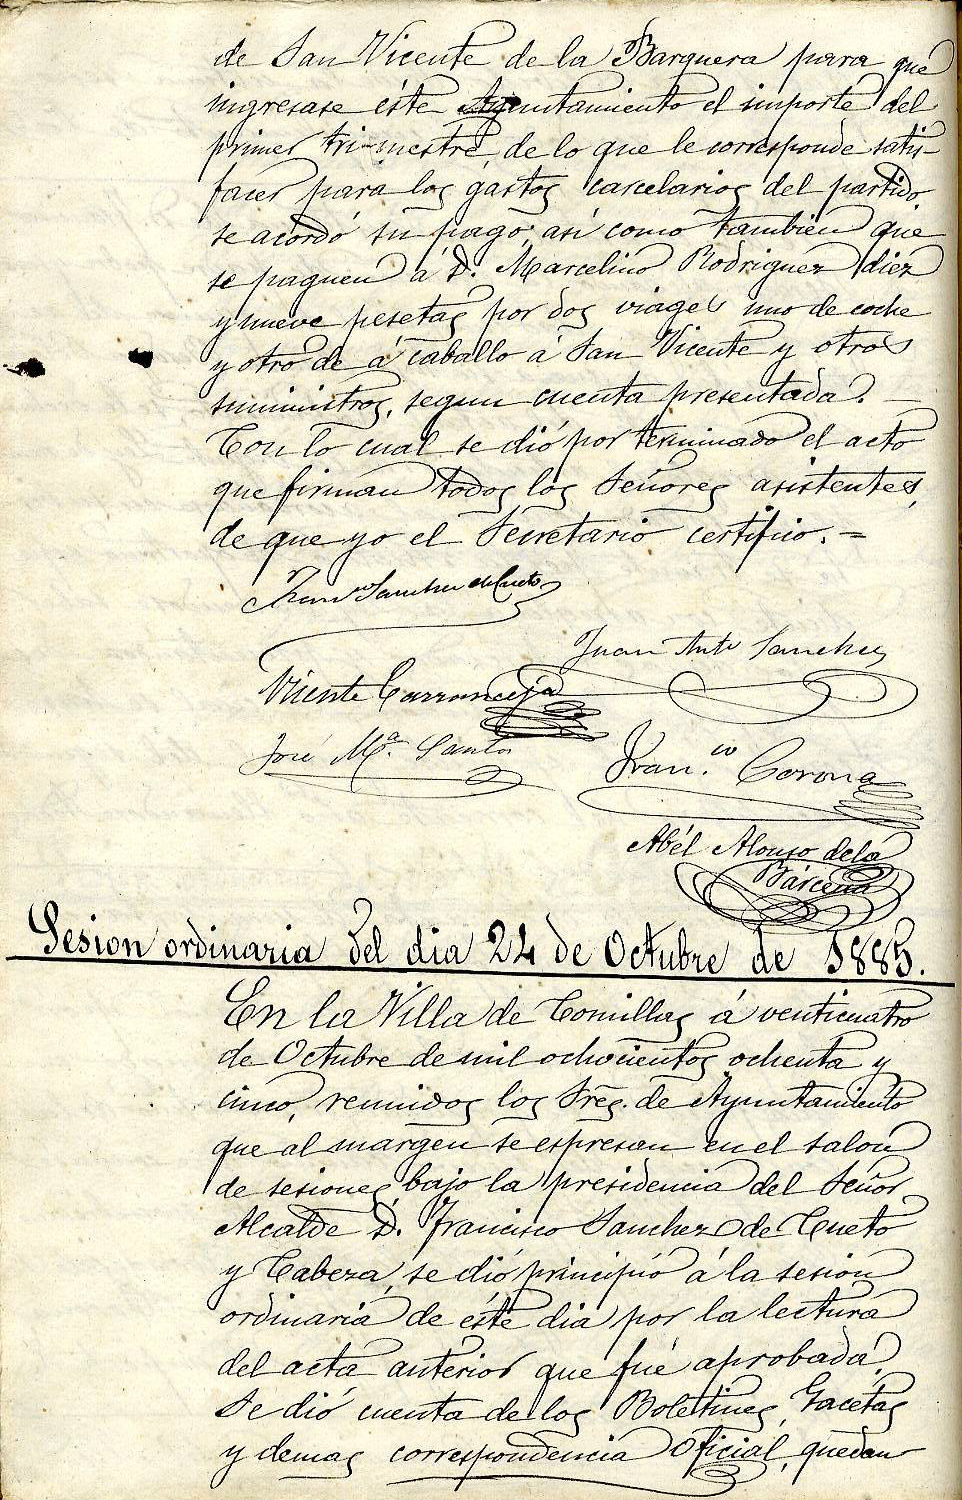 de San Vicente de la Barquera para que
ingresase éste Ayuntamiento el importe del
primer tri-mestre, de lo que le corresponde satis-
facer para los gastos carcelarios del partido,
se acordó su pago; asi como tambien que
se paguen á D. Marcelino Rodriguez diez
y nueve pesetas por dos viages uno de coche
y otro de á caballo á San Vicente y otros
suministros, segun cuenta presentada. —
Con lo cual se dió por terminado el acto
que firman todos los Señores asistentes,
de que yo el Secretario certifico. =
Franco Sanchez de Cueto
Juan Anto Sanchez
Vicente Carranceja
José Ma. Santos
Fran.co Corona
Abél Alonso de la
Bárcena
Sesion ordinaria del dia 24 de Octubre de 1885.
En la Villa de Comillas á venticuatro
de Octubre de mil ochocientos ochenta y
cinco, reunidos los Sres. de Ayuntamiento
que al margen se espresan en el salon
de sesiones bajo la presidencia del Señor
Alcalde D. Francisco Sanchez de Cueto
y Cabeza, se dió principió á la sesion
ordinaria de éste dia por la lectura
del acta anterior que fué aprobada.
Se dió cuenta de los Boletines, Gacetas
y demas correspondencia oficial, quedan